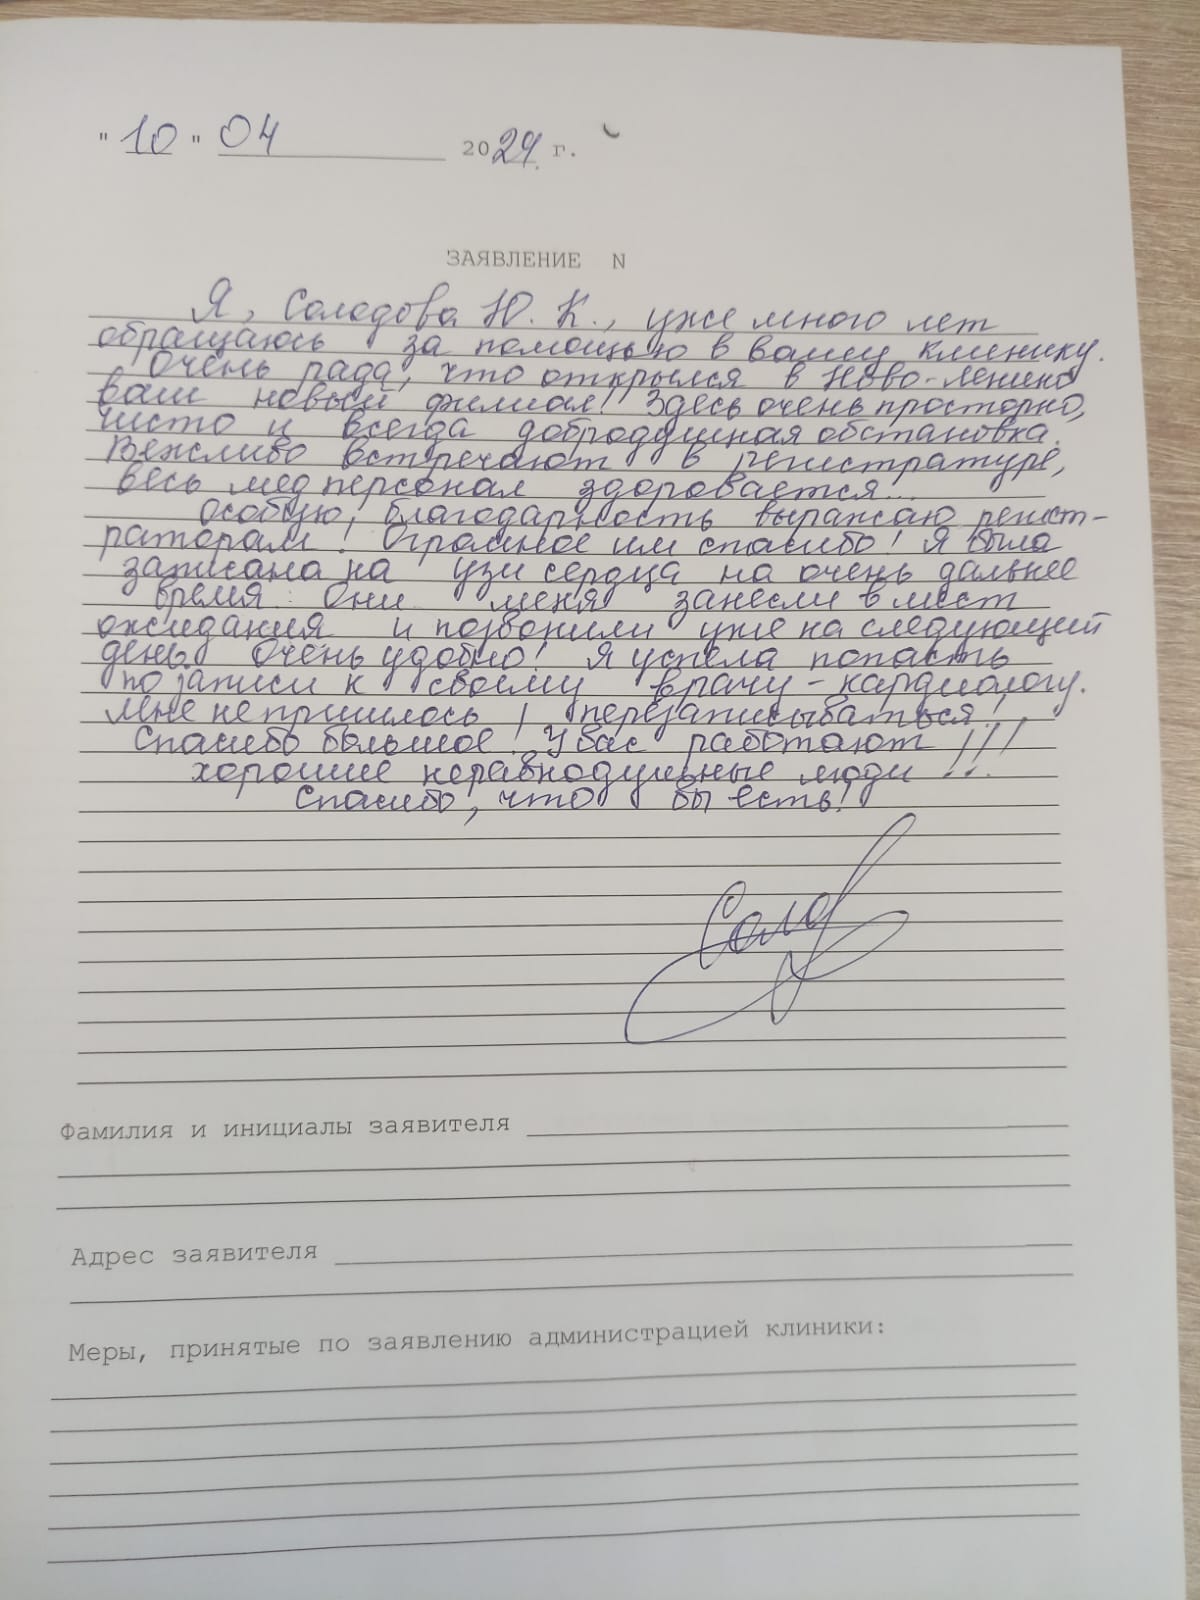 "10" 04 2024 г.
ЗАЯВЛЕНИЕ N
Я, Солодова Ю. К., уже много лет
обращаюсь за помощью в вашу клинику.
Очень рада, что открылся в Ново-Ленино
ваш новый филиал! Здесь очень просторно,
чисто и всегда добродушная обстановка.
Вежливо встречают в регистратуре,
весь мед персонал здоровается...
Особую, благодарность выражаю регист-
раторам! Огромное им спасибо! Я была
записана на узи сердца на очень дальнее
время. Они меня занесли в лист
ожидания и позвонили уже на следующий
день. Очень удобно! Я успела попасть
по записи к своему врачу-кардиологу.
Мне не пришлось перезаписываться!
Спасибо большое! У вас работают
хорошие неравнодушные люди!!!
Спасибо, что вы есть!
Солод
Фамилия и инициалы заявителя
Адрес заявителя
Меры, принятые по заявлению администрацией клиники: